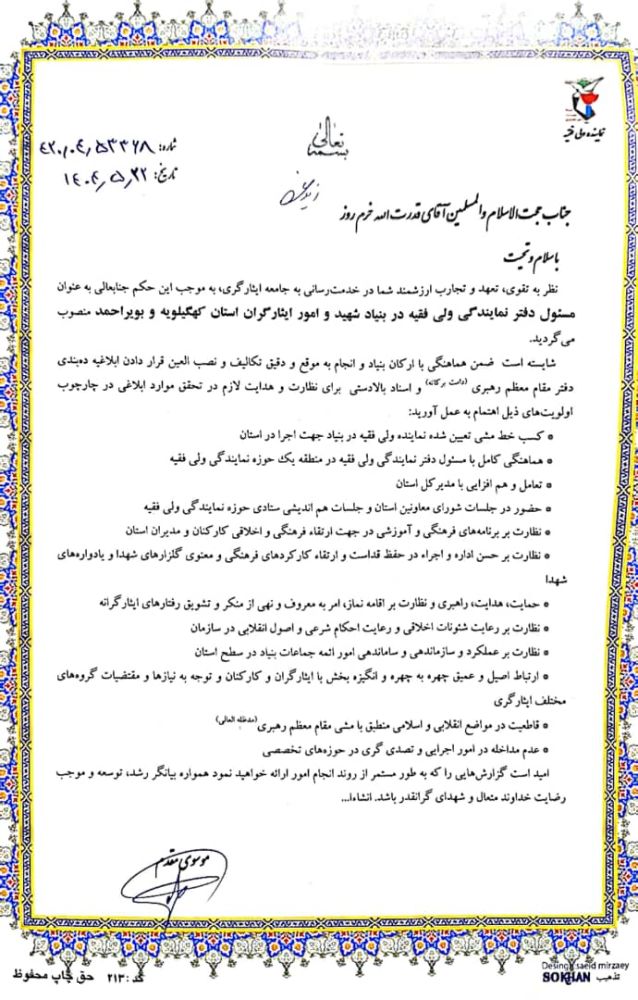 نماینده ولی فقیه
بسمه تعالی
شماره: ۴۲۰/۰۴/۵۳۳۶۸
تاریخ: ۱۴۰۴/۵/۲۲
جناب حجت الاسلام والمسلمین آقای قدرت الله خرم روز
با سلام و تحیت
نظر به تقوی، تعهد و تجارب ارزشمند شما در خدمت‌رسانی به جامعه ایثارگری، به موجب این حکم جنابعالی به عنوان
مسئول دفتر نمایندگی ولی فقیه در بنیاد شهید و امور ایثارگران استان کهگیلویه و بویراحمد منصوب
می‌گردید.
شایسته است ضمن هماهنگی با ارکان بنیاد و انجام به موقع و دقیق تکالیف و نصب العین قرار دادن ابلاغیه ده‌بندی
دفتر مقام معظم رهبری (دامت برکاته) و اسناد بالادستی برای نظارت و هدایت لازم در تحقق موارد ابلاغی در چارچوب
اولویت‌های ذیل اهتمام به عمل آورید:
* کسب خط مشی تعیین شده نماینده ولی فقیه در بنیاد جهت اجرا در استان
* هماهنگی کامل با مسئول دفتر نمایندگی ولی فقیه در منطقه یک حوزه نمایندگی ولی فقیه
* تعامل و هم افزایی با مدیرکل استان
* حضور در جلسات شورای معاونین استان و جلسات هم اندیشی ستادی حوزه نمایندگی ولی فقیه
* نظارت بر برنامه‌های فرهنگی و آموزشی در جهت ارتقاء فرهنگی و اخلاقی کارکنان و مدیران استان
* نظارت بر حسن اداره و اجراء در حفظ قداست و ارتقاء کارکردهای فرهنگی و معنوی گلزارهای شهدا و یادواره‌های
شهدا
* حمایت، هدایت، راهبری و نظارت بر اقامه نماز، امر به معروف و نهی از منکر و تشویق رفتارهای ایثارگرانه
* نظارت بر رعایت شئونات اخلاقی و رعایت احکام شرعی و اصول انقلابی در سازمان
* نظارت بر عملکرد و سازماندهی و ساماندهی امور ائمه جماعات بنیاد در سطح استان
* ارتباط اصیل و عمیق چهره به چهره و انگیزه بخش با ایثارگران و کارکنان و توجه به نیازها و مقتضیات گروه‌های
مختلف ایثارگری
* قاطعیت در مواضع انقلابی و اسلامی منطبق با مشی مقام معظم رهبری (مدظله العالی)
* عدم مداخله در امور اجرایی و تصدی گری در حوزه‌های تخصصی
امید است گزارش‌هایی را که به طور مستمر از روند انجام امور ارائه خواهید نمود همواره بیانگر رشد، توسعه و موجب
رضایت خداوند متعال و شهدای گرانقدر باشد. انشاءا...
موسوی مقدم
Desing: saeid mirzaey
تذهیب SOKHAN
کد: ۲۱۳ حق چاپ محفوظ